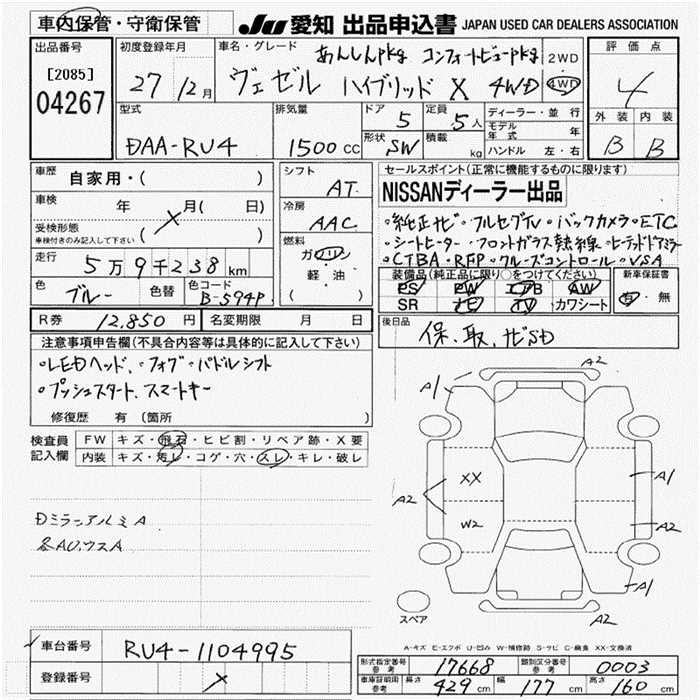 車内保管・守衛保管
JU 愛知 出品申込書 JAPAN USED CAR DEALERS ASSOCIATION
出品番号
[2085]
04267
初度登録年月
27 12月
車名・グレード
あんしんpkg コンフォートビューpkg
ヴェゼル ハイブリッド X 4WD
2WD
4WD
評価点
4
外装 内装
B B
型式
DAA-RU4
排気量
1500 CC
ドア
5
定員
5人
形状
SW
積載
kg
ディーラー・並行
モデル年式 年
ハンドル 左・右
車歴
自家用・( )
車検 年 月( 日)
受検形態
車検付きのみ記入して下さい ( )
走行
5万9千238km
色
ブルー
色替
色コード
B-594P
シフト
AT
冷房
AAC
燃料
ガソリン
軽油
( )
セールスポイント(正常に機能するものに限ります)
NISSANディーラー出品
・純正ナビ・フルセグTV・バックカメラ・ETC
・シートヒーター・フロントガラス熱線・ヒーテッドドアミラー
・CTBA・RFP・クルーズコントロール・VSA
装備品(純正品に限り○をつけてください)
PS PW エアB AW
SR ナビ TV カワシート
新車保証書
有・無
R券 12,850円
名変期限 月 日
後日品
保、取、ナビSD
注意事項申告欄(不具合内容等は具体的に記入して下さい)
・LEDヘッド、・フォグ・パドルシフト
・プッシュスタート、スマートキー
修復歴 有(箇所 )
検査員記入欄
FW キズ・飛石・ヒビ割・リペア跡・X要
内装 キズ・汚レ・コゲ・穴・スレ・キレ・破レ
Dミラーアルミ A
各AUウスA
A2
A1
XX
A2
W2
A1
A2
A1
A2
スペア
A-キズ E-エクボ U-凹み W-補修跡 S-サビ C-腐食 XX-交換済
車台番号 RU4-1104995
登録番号
形式指定番号参考 17668
類別区分番号参考 0003
車庫証明用参考 長さ 429cm 幅 177cm 高さ 160cm